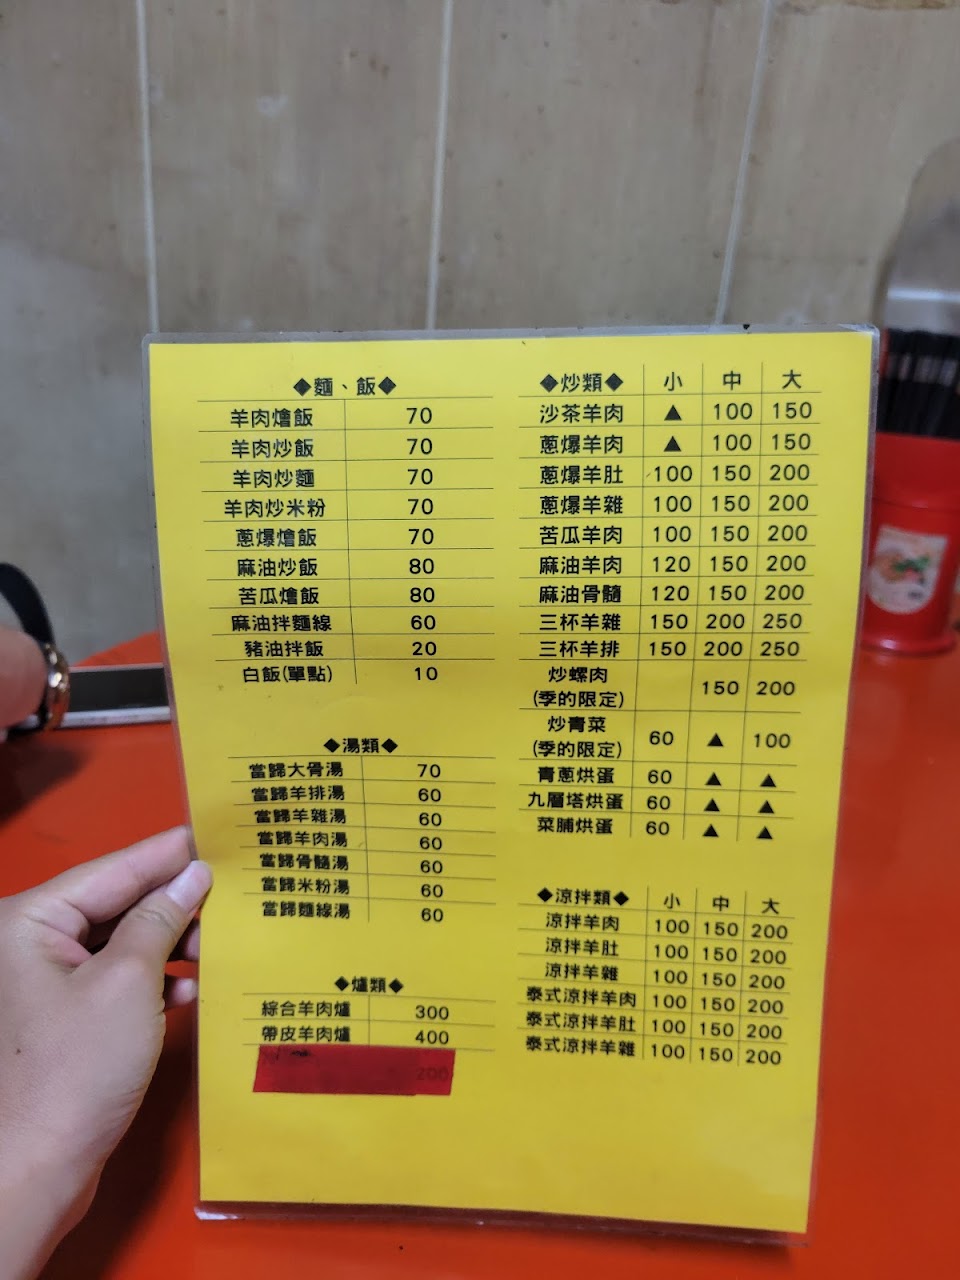 ◆麵、飯◆
羊肉燴飯 70
羊肉炒飯 70
羊肉炒麵 70
羊肉炒米粉 70
蔥爆燴飯 70
麻油炒飯 80
苦瓜燴飯 80
麻油拌麵線 60
豬油拌飯 20
白飯(單點) 10
◆湯類◆
當歸大骨湯 70
當歸羊排湯 60
當歸羊雜湯 60
當歸羊肉湯 60
當歸骨髓湯 60
當歸米粉湯 60
當歸麵線湯 60
◆爐類◆
綜合羊肉爐 300
帶皮羊肉爐 400
200
◆炒類◆ 小 中 大
沙茶羊肉 ▲ 100 150
蔥爆羊肉 ▲ 100 150
蔥爆羊肚 100 150 200
蔥爆羊雜 100 150 200
苦瓜羊肉 100 150 200
麻油羊肉 120 150 200
麻油骨髓 120 150 200
三杯羊雜 150 200 250
三杯羊排 150 200 250
炒螺肉
(季的限定) 150 200
炒青菜
(季的限定) 60 ▲ 100
青蔥烘蛋 60 ▲ ▲
九層塔烘蛋 60 ▲ ▲
菜脯烘蛋 60 ▲ ▲
◆涼拌類◆ 小 中 大
涼拌羊肉 100 150 200
涼拌羊肚 100 150 200
涼拌羊雜 100 150 200
泰式涼拌羊肉 100 150 200
泰式涼拌羊肚 100 150 200
泰式涼拌羊雜 100 150 200